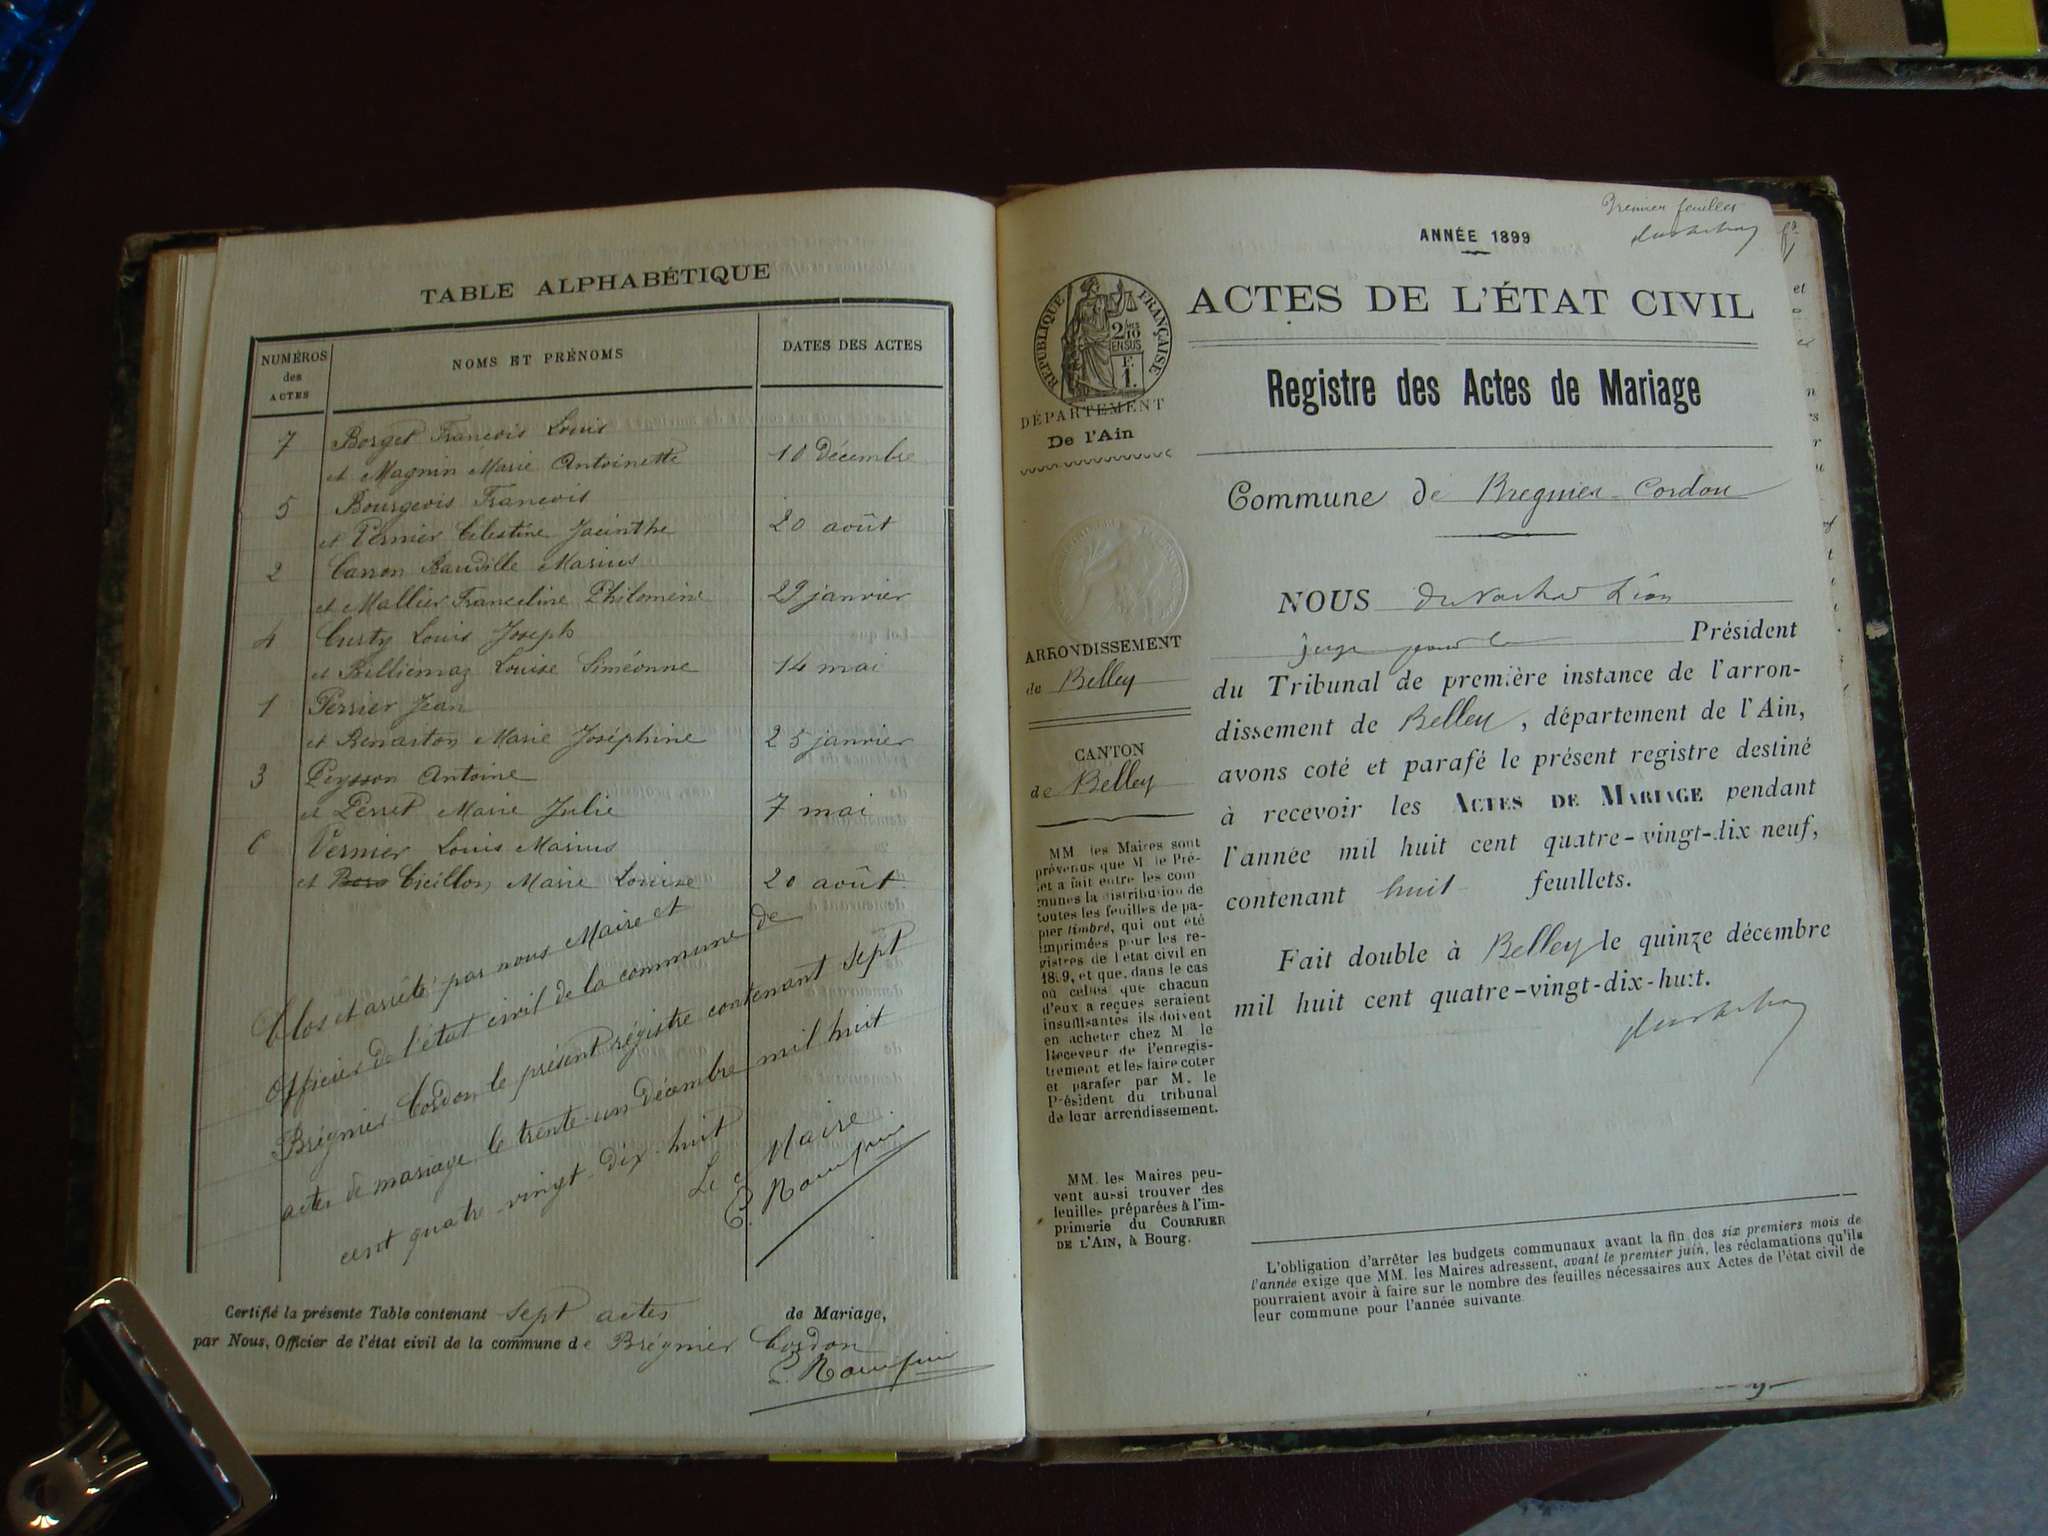 TABLE ALPHABÉTIQUE
NUMÉROS
des
ACTES
NOMS ET PRÉNOMS
DATES DES ACTES
7 Borget François Louis
et Magnin Marie Antoinette 10 Décembre
5 Bourgeois François
et Vernier Célestine Jacinthe 20 août
2 Carron Marius
et Mallier Franceline Philomène 29 janvier
4 Curty Louis Joseph
et Billiemaz Louise Siméonne 14 mai
1 Perrier Jean
et Marie Joséphine 25 janvier
3 Peysson Antoine
et Perret Marie Julie 7 mai
6 Vernier Louis Marius
et Marie Louise 20 août
Clos et arrêté par nous Maire et
Officier de l'état civil de la commune de
Brégnier Cordon, le présent régistre contenant sept
actes de mariage le trente-un décembre mil huit
cent quatre-vingt-dix-huit
Le Maire
Certifié la présente Table contenant sept actes de Mariage,
par Nous, Officier de l'état civil de la commune de Brégnier Cordon
Premier feuillet
ANNÉE 1899
ACTES DE L'ÉTAT CIVIL
RÉPUBLIQUE FRANÇAISE
2/10
EN SUS
F.
1.
Registre des Actes de Mariage
DÉPARTEMENT
De l'Ain
Commune de Bregnier-Cordon
NOUS Léon
juge pour le Président
du Tribunal de première instance de l'arron-
dissement de Belley, département de l'Ain,
avons coté et parafé le présent registre destiné
à recevoir les ACTES DE MARIAGE pendant
l'année mil huit cent quatre-vingt-dix neuf,
contenant huit feuillets.
Fait double à Belley le quinze décembre
mil huit cent quatre-vingt-dix-huit.
ARRONDISSEMENT
de Belley
CANTON
de Belley
MM les Maires sont
prévenus que M. le Pré-
fet a fait entre les com
munes la distribution de
toutes les feuilles de pa-
pier timbré, qui ont été
imprimées pour les re-
gistres de l'état civil en
1899, et que, dans le cas
où celles que chacun
d'eux a reçues seraient
insuffisantes ils doivent
en acheter chez M. le
Receveur de l'enregis-
trement et les faire coter
et parafer par M. le
Président du tribunal
de leur arrondissement.
MM. les Maires peu-
vent aussi trouver des
feuilles préparées à l'im-
primerie du COURRIER
DE L'AIN, à Bourg.
L'obligation d'arrêter les budgets communaux avant la fin des six premiers mois de
l'année exige que MM. les Maires adressent, avant le premier juin, les réclamations qu'ils
pourraient avoir à faire sur le nombre des feuilles nécessaires aux Actes de l'état civil de
leur commune pour l'année suivante.